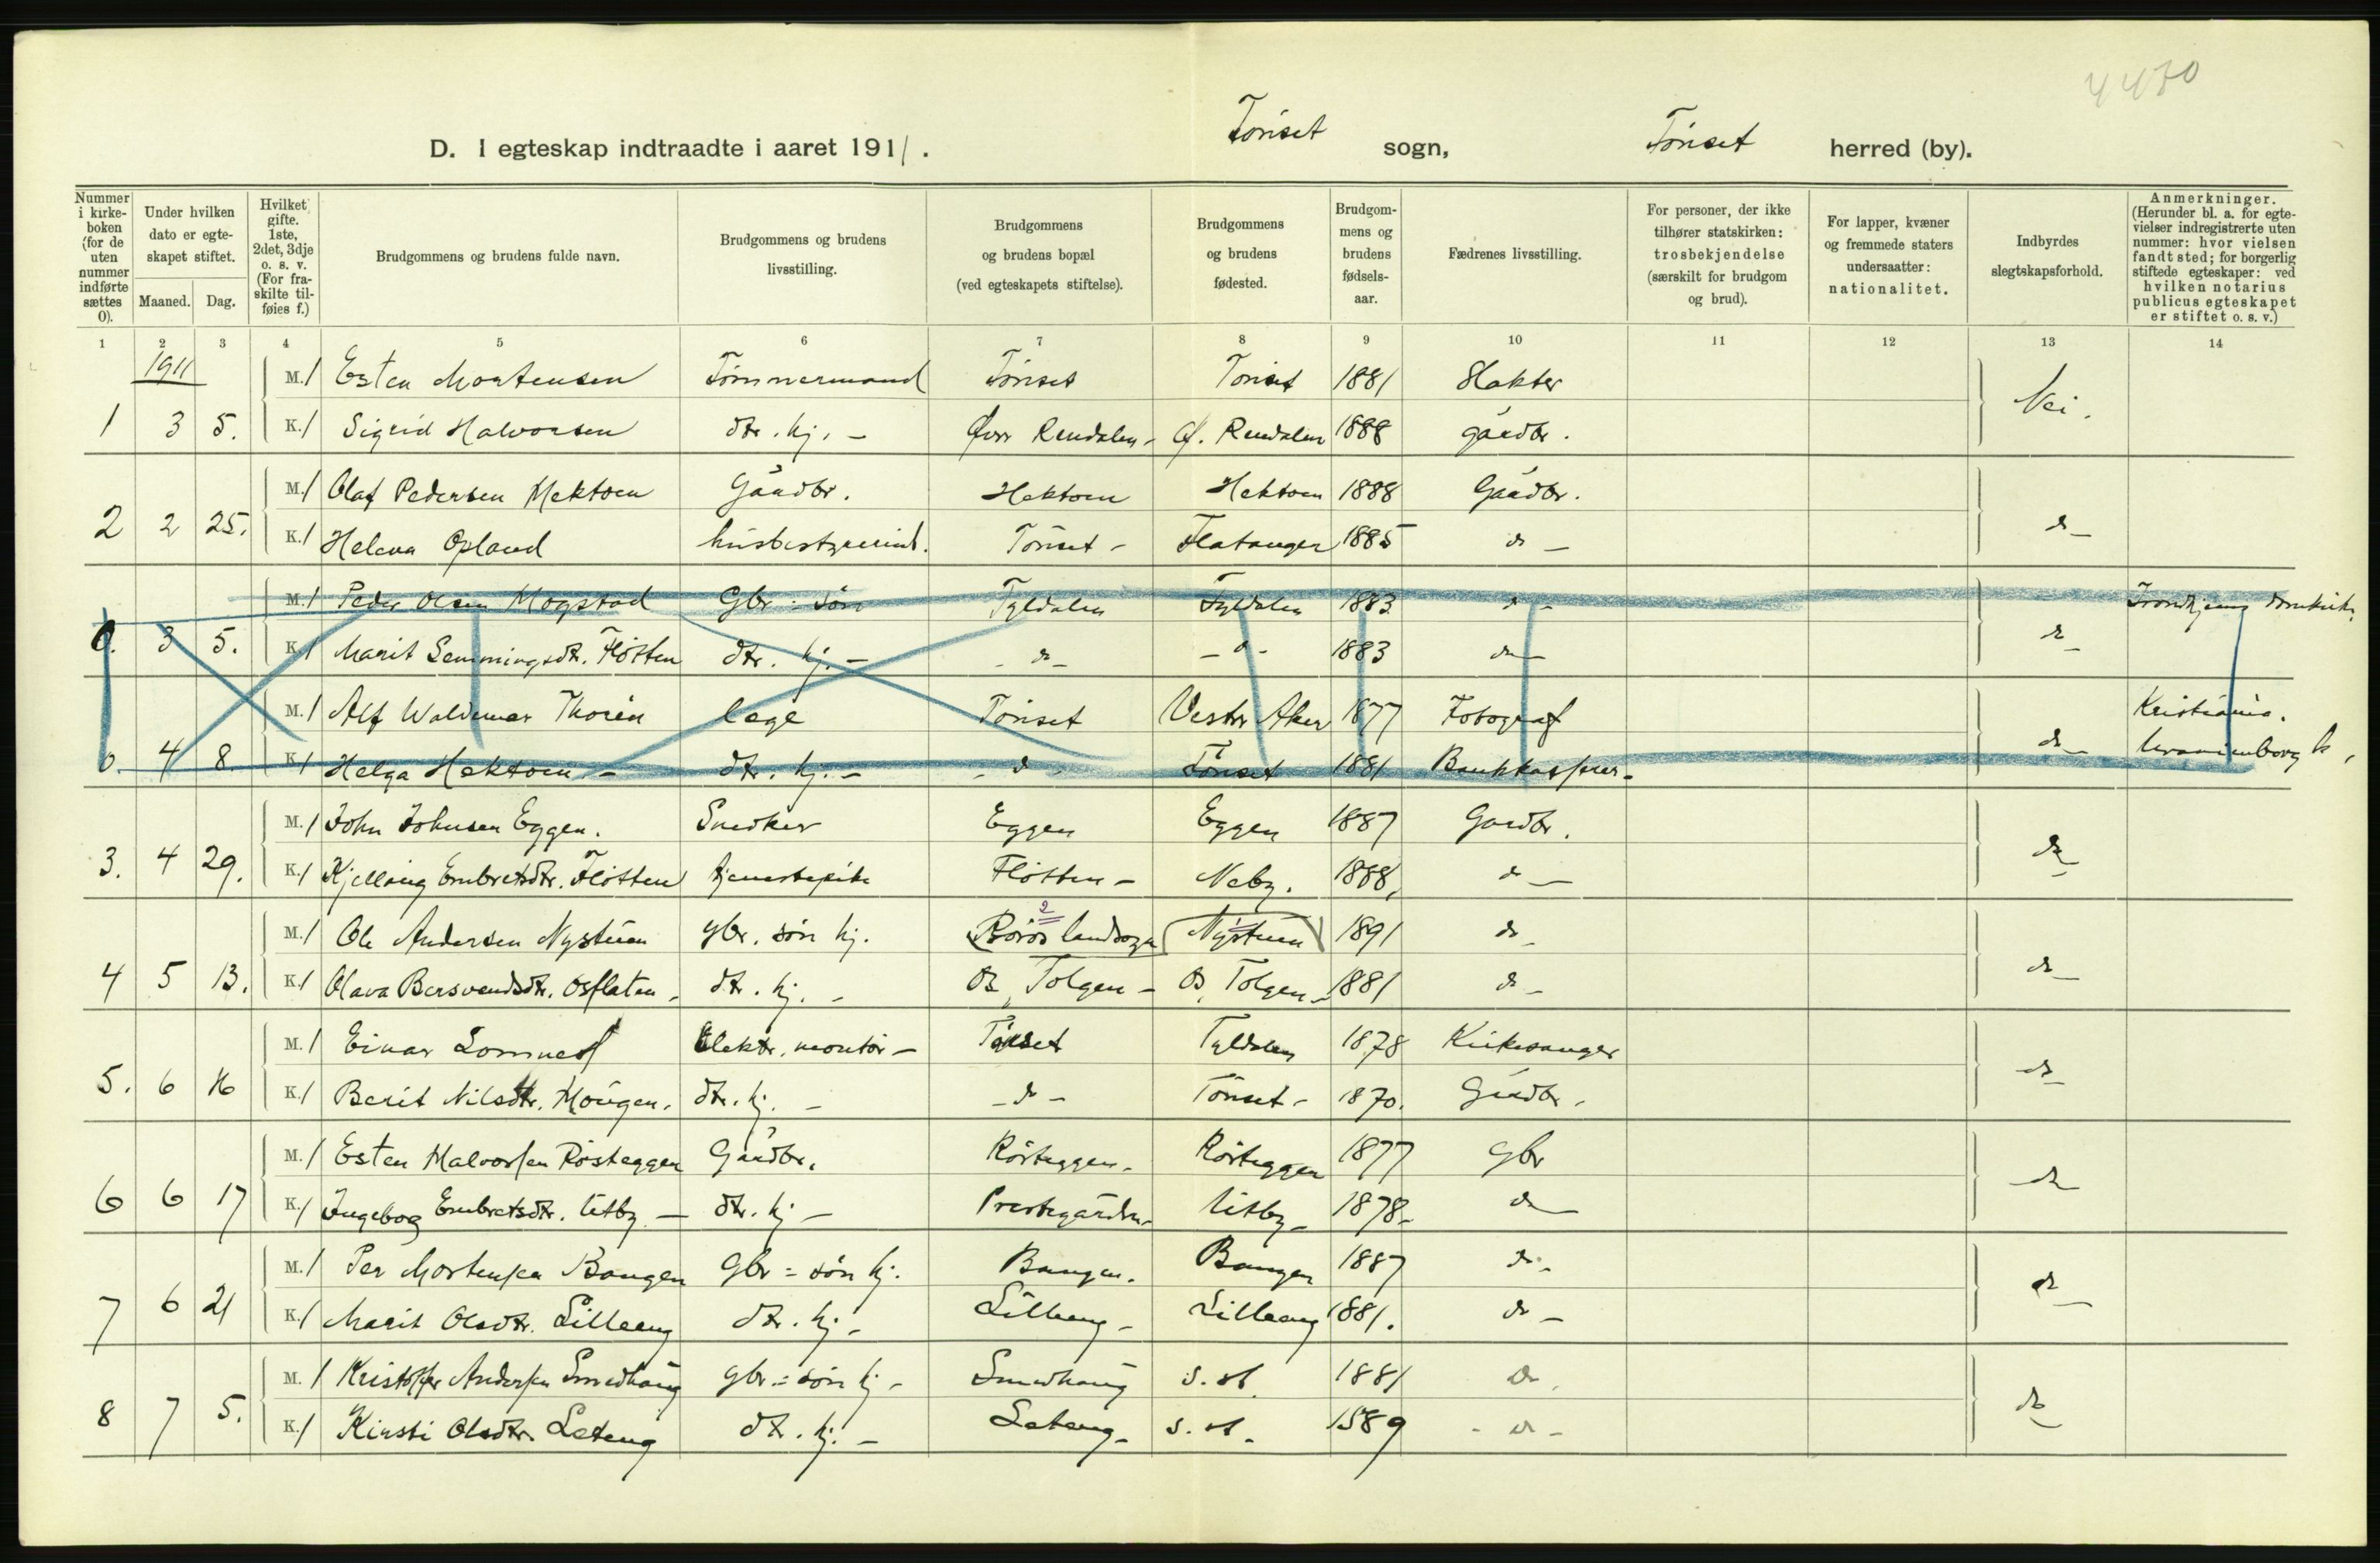 4430
D. I egteskap indtraadte i aaret 1911. Tönset sogn, Tönset herred (by).
Nummer i kirke-boken (for de uten nummer indførte sættes 0).
Under hvilken dato er egte-skapet stiftet.
Maaned. Dag.
Hvilket gifte. 1ste, 2det, 3dje o. s. v. (For fra-skilte til-føies f.)
Brudgommens og brudens fulde navn.
Brudgommens og brudens livsstilling.
Brudgommens og brudens bopæl (ved egteskapets stiftelse).
Brudgommens og brudens fødested.
Brudgom-mens og brudens fødsels-aar.
Fædrenes livsstilling.
For personer, der ikke tilhører statskirken: trosbekjendelse (særskilt for brudgom og brud).
For lapper, kvæner og fremmede staters undersaatter: nationalitet.
Indbyrdes slegtskapsforhold.
Anmerkninger. (Herunder bl. a. for egte-vielser indregistrerte uten nummer: hvor vielsen fandt sted; for borgerlig stiftede egteskaper: ved hvilken notarius publicus egteskapet er stiftet o. s. v.)
1 2 3 4 5 6 7 8 9 10 11 12 13 14
1911
M. / Esten Mortensen Tömmermand Tönset Tönset 1881 Slakter Nei.
1 3 5. K. / Sigrid Halvorsen dtr. hj. - Øvre Rendalen - Ø. Rendalen 1888 gaardbr.
M. / Olaf Pedersen Hektoen Gaardbr. Hektoen Hektoen 1888 Gaardbr.
2 2 25. K. / Helena Opland husbestyrerind. Tönset - Flatanger 1885 do - do -
M. / Peder Olsen Mogstad Gbr = sön Tyldalen Tyldalen 1883 do - Trondhjems domkirke
0. 3 5. K. / Marit Semmingsdtr. Flötten dtr. hj. - - do - - do - 1883 do - do -
M. / Alf Waldemar Thorén læge Tönset Vestre Aker 1877 Fotograf Kristiania.
0. 4 8. K. / Helga Hektoen - dtr. hj. - - do - Tönset 1881 Bankkasserer - do - Uranienborg k.
M. / John Johnsen Eggen. Snedker Eggen Eggen 1887 Gardbr.
3. 4 29. K. / Kjellaug Embretsdtr. Flötten tjenestepike Flötten - Neby. 1888, do - do
M. / Ole Andersen Nystuen gbr. sön hj. 2 (Röros landsogn (Nystuen) 1891 do -
4 5 13. K. / Olava Bersvendsdtr. Osflaten - dtr. hj. - Os, Tolgen - Os, Tolgen - 1881 do - do -
M. / Einar Lomnes Elektr. montör - Tönset Tyldalen 1878 Kirkesanger
5. 6 16 K. / Berit Nilsdtr. Moügen. dtr. hj. - - do - Tönset - 1870. Gaardbr. do -
M. / Esten Halvorsen Rösteggen Gaardbr. Rösteggen - Rösteggen 1877 Gbr
6 6 17 K. / Ingeborg Embretsdtr. Utby - dtr. hj - Prestegården - Utby - 1878 - do - do
M. / Per Mortensen Bangen Gbr = sön hj. Bangen. Bangen 1887 do -
7 6 21 K. / Marit Olsdtr. Lilleeng dtr. hj - Lilleeng - Lilleeng 1881. do - do -
M. / Kristoffer Andersen Smedhaug gbr = sön hj - Smedhaug s. st. 1881 do.
8 7 5. K. / Kirsti Olsdtr. Leteng dtr. hj. - Leteng - s. st. 1889 - do - do